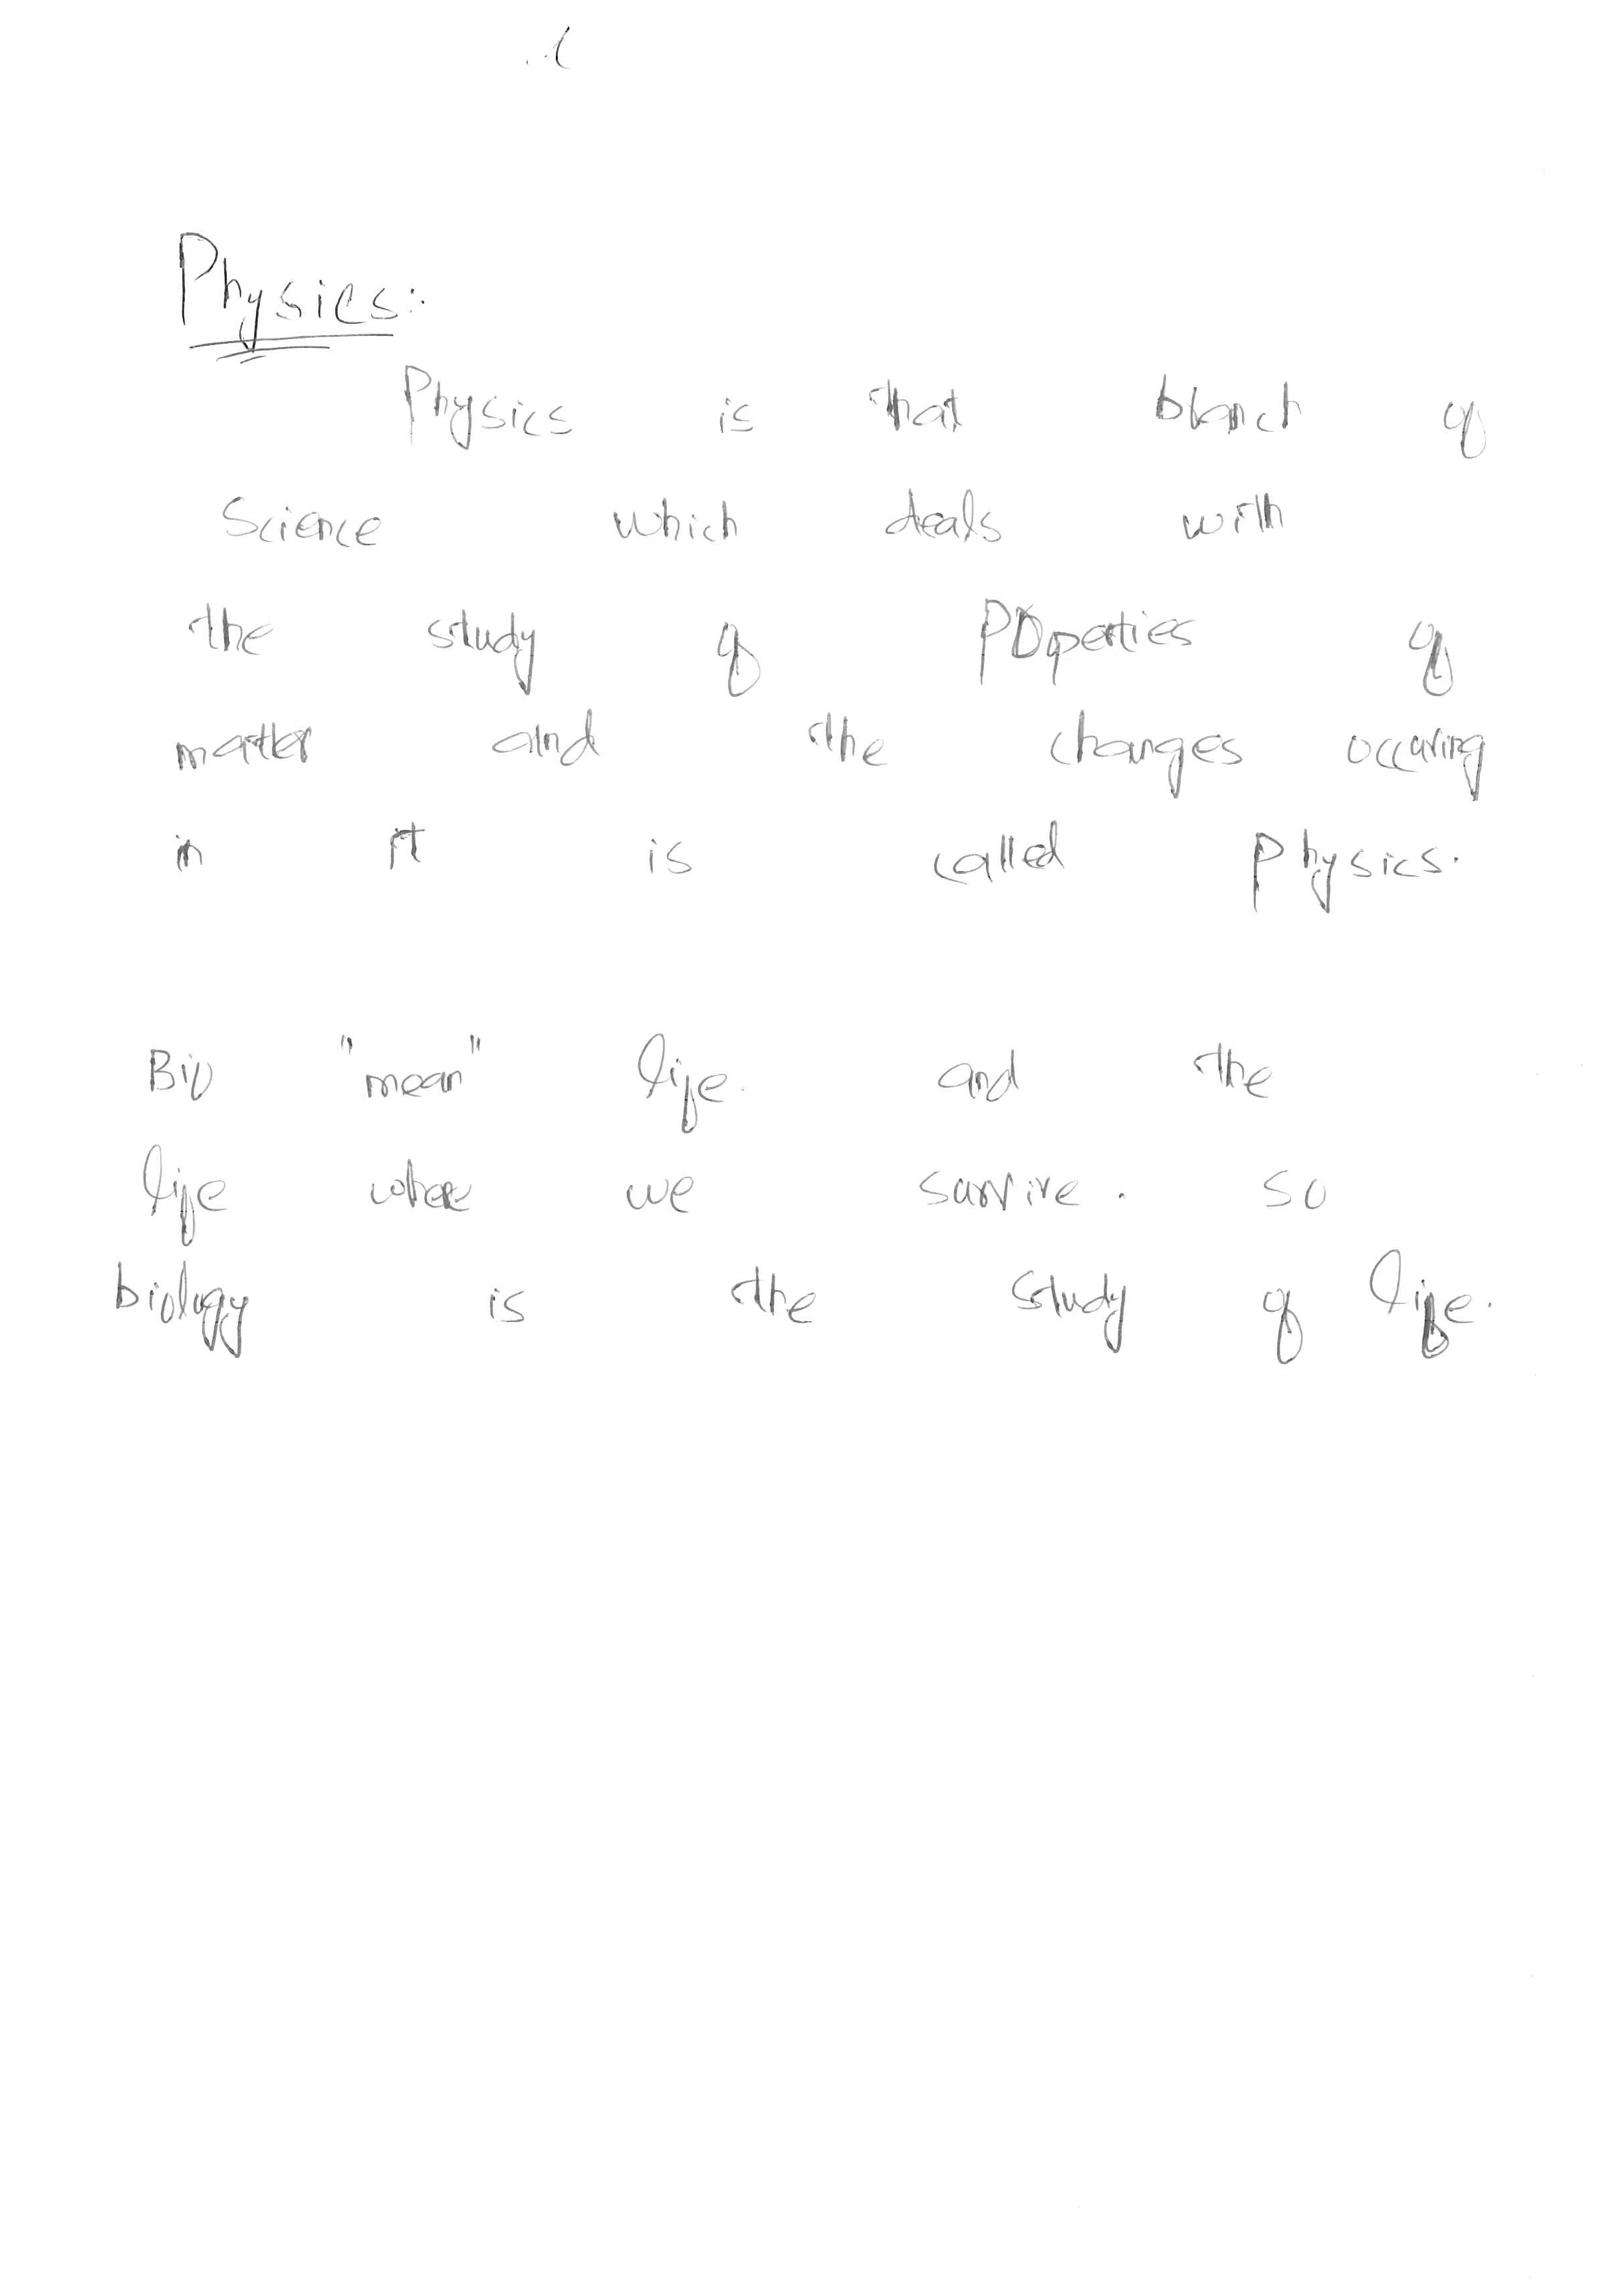 Physics:
Physics is that branch of
Science which deals with
the study of Properties of
matter and the changes occuring
in it is called physics.
Bio "mean" life. and the
life where we survive. so
biology is the study of life.